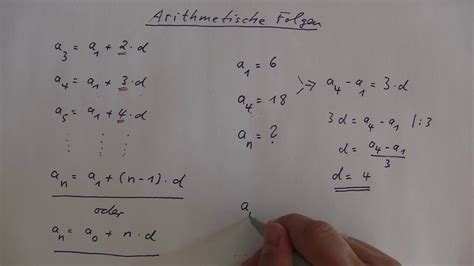 Arithmetische Folgen
a₃ = a₁ + 2·d
a₄ = a₁ + 3·d
a₅ = a₁ + 4·d
⋮ ⋮ ⋮
aₙ = a₁ + (n-1)·d
oder
aₙ = a₀ + n·d
a₁ = 6
a₄ = 18
aₙ = ?
⇒ a₄ - a₁ = 3·d
3d = a₄ - a₁ |:3
d = (a₄ - a₁)/3
d = 4
a